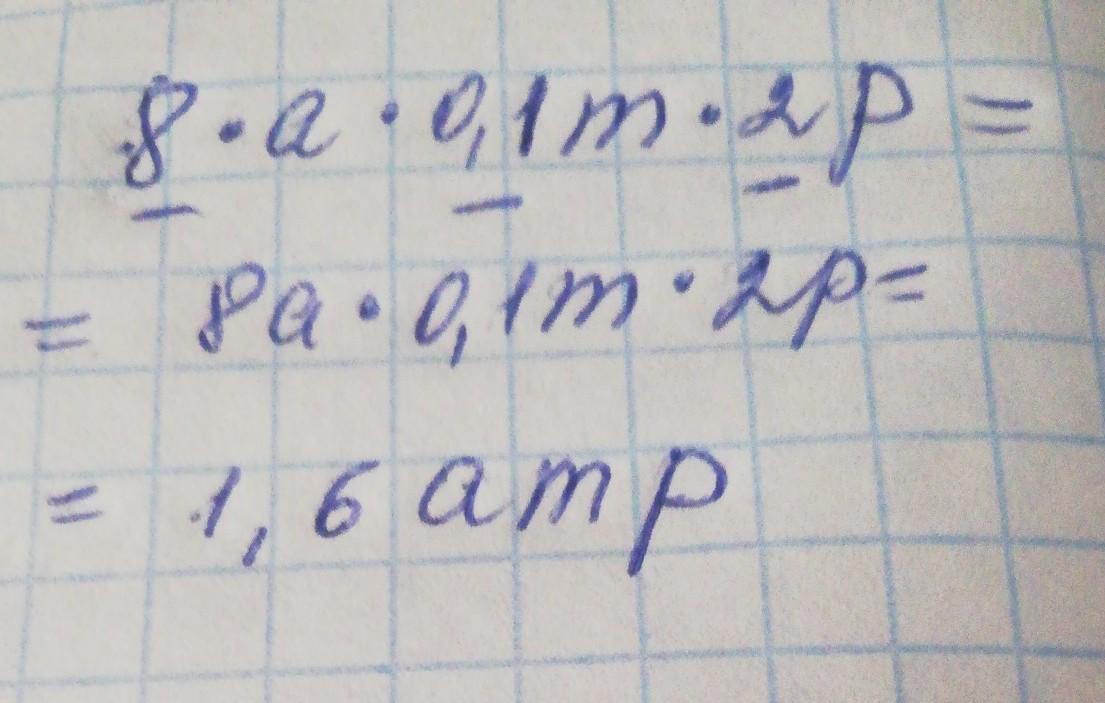 8 · a · 0,1m · 2p =
= 8a · 0,1m · 2p =
= 1,6 amp